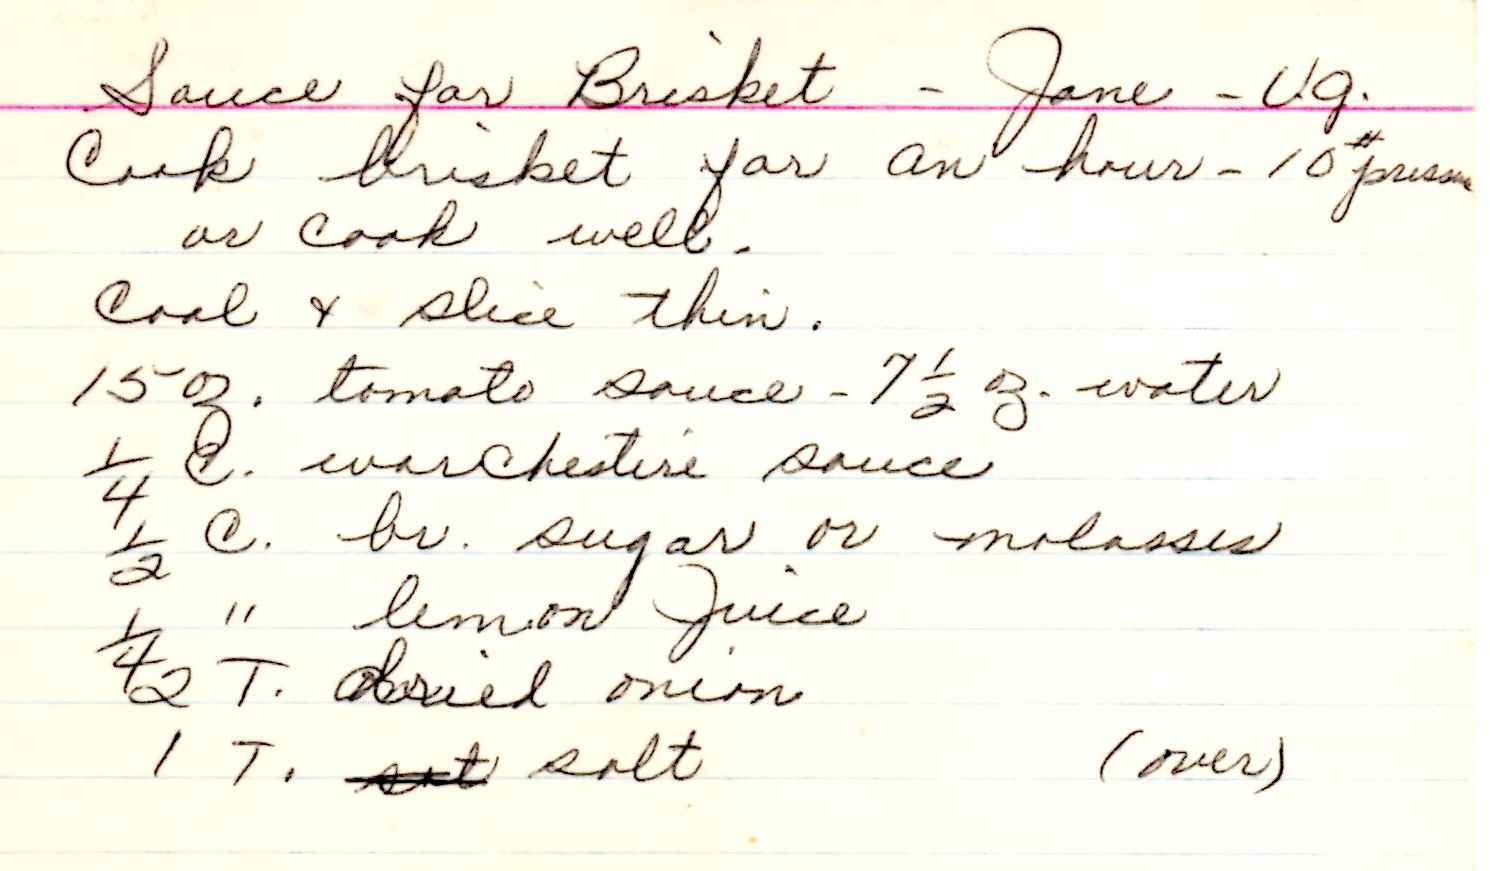 Sauce for Brisket - Jane - V.g.
Cook brisket for an hour - 10 # pressure
or cook well.
Cool & slice thin.
15 oz. tomato sauce - 7 1/2 oz. water
1/4 C. worchestire sauce
1/2 C. br. sugar or molasses
1/4 " lemon Juice
2 T. dried onion
1 T. salt (over)